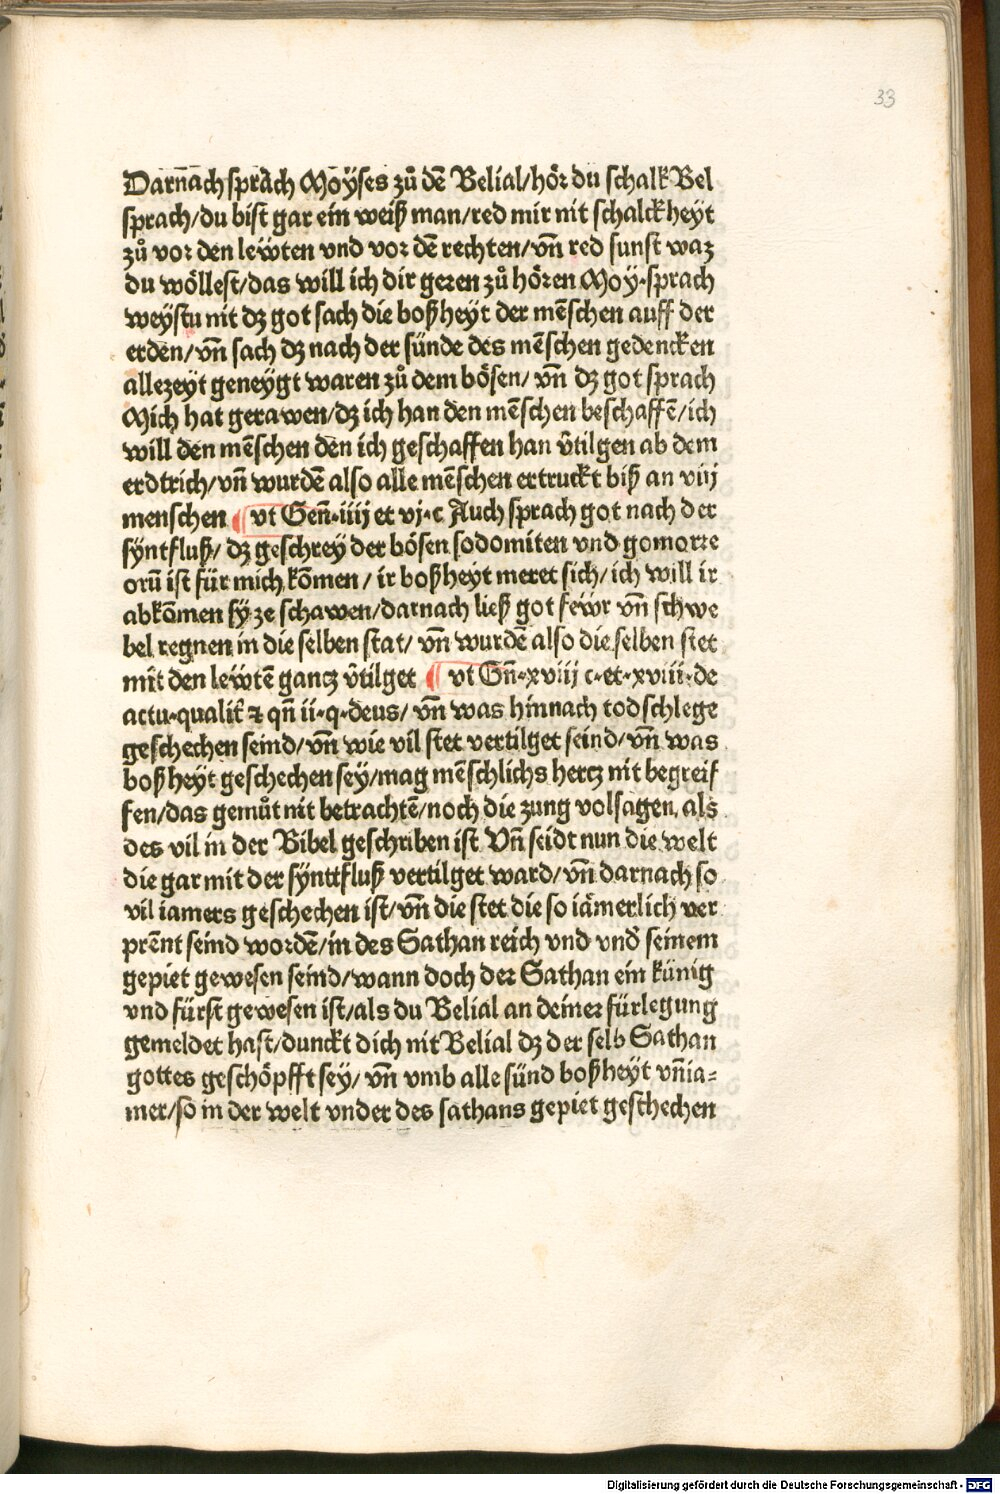 33
Darnach sprach Moÿses zů dē Belial/hör du schalk Bel
sprach/du bist gar ein weiß man/red mir nit schalckheyt
zů vor den leẅten vnd vor dē rechten/vñ red sunst waz
du wöllest/das will ich dir geren zů hören Moy·sprach
weystu nit dz got sach die boßheyt der mēschen auff der
erden/vñ sach dz nach der sünde des mēschen gedencken
allezeyt geneygt waren zů dem bösen/vñ dz got sprach
Mich hat gerawen/dz ich han den mēschen beschaffē/ich
will den mēschen den ich geschaffen han v̄tilgen ab dem
erdtrich/vñ wurdē also alle mēschen ertruckt biß an viij
menschen ¶ vt Geñ·iiij et vj·c Auch sprach got nach der
syntfluß/dz geschrey der bösen sodomiten vnd gomorre
orū ist für mich kōmen/ir boßheyt meret sich/ich will ir
abkōmen sÿ ze schawen/darnach ließ got feẅr vñ schwe
bel regnen in die selben stat/vñ wurdē also die selben stet
mit den leẅtē gantz v̄tilget ¶ vt Gñ·xviij c·et·xviii·de
actu·qualit̄ ⁊ qñ ii·q·deus/vñ was hinnach todschlege
geschechen seind/vñ wie vil stet vertilget seind/vñ was
boßheyt geschechen sey/mag mēschlichs hertz nit begreif
fen/das gemůt nit betrachtē/noch die zung volsagen als
des vil in der Bibel geschriben ist Vñ seidt nun die welt
die gar mit der sÿnttfluß vertilget ward/vñ darnach so
vil iamers geschechen ist/vñ die stet die so iämerlich ver
prēnt seind wordē/in des Sathan reich vnd vnd̄ seinem
gepiet gewesen seind/wann doch der Sathan ein künig
vnd fürst gewesen ist/als du Belial an deiner fürlegung
gemeldet hast/dunckt dich nit Belial dz der selb Sathan
gottes geschöpfft sey/vñ vmb alle sünd boßheyt vñ ia=
mer/so in der welt vnder des sathans gepiet geschechen
Digitalisierung gefördert durch die Deutsche Forschungsgemeinschaft - DFG